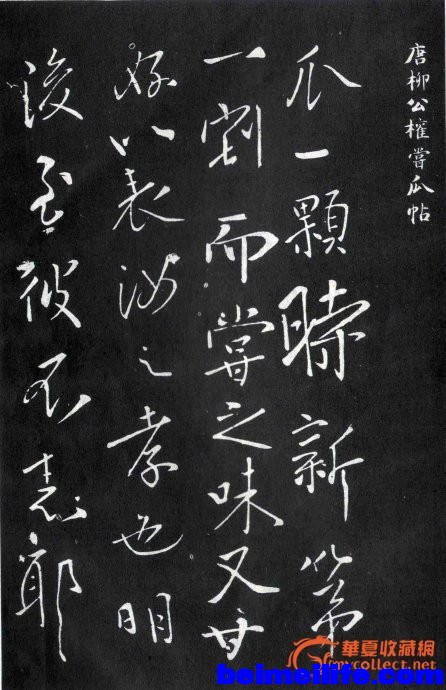 唐柳公權嘗瓜帖
瓜一顆時新第
一割而嘗之味又甘
好以表汝之孝也明
後至彼不悉耶
華夏收藏網
mycollect.net
beimeilife.com